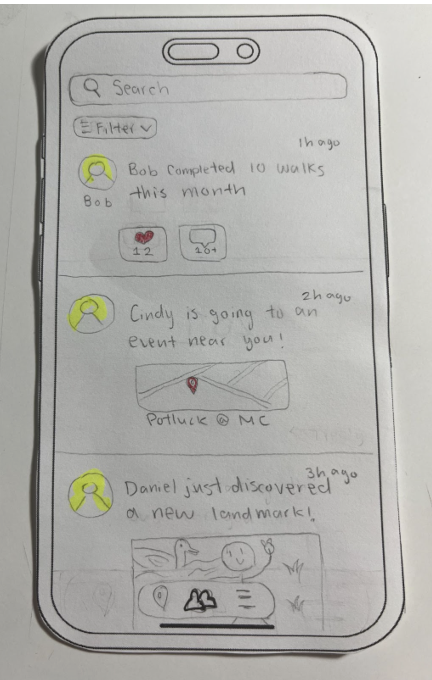 Search
Filter
1h ago
Bob completed 10 walks
this month
Bob
12
20+
2h ago
Cindy is going to an
event near you!
Potluck @ MC
3h ago
Daniel just discovered
a new landmark!